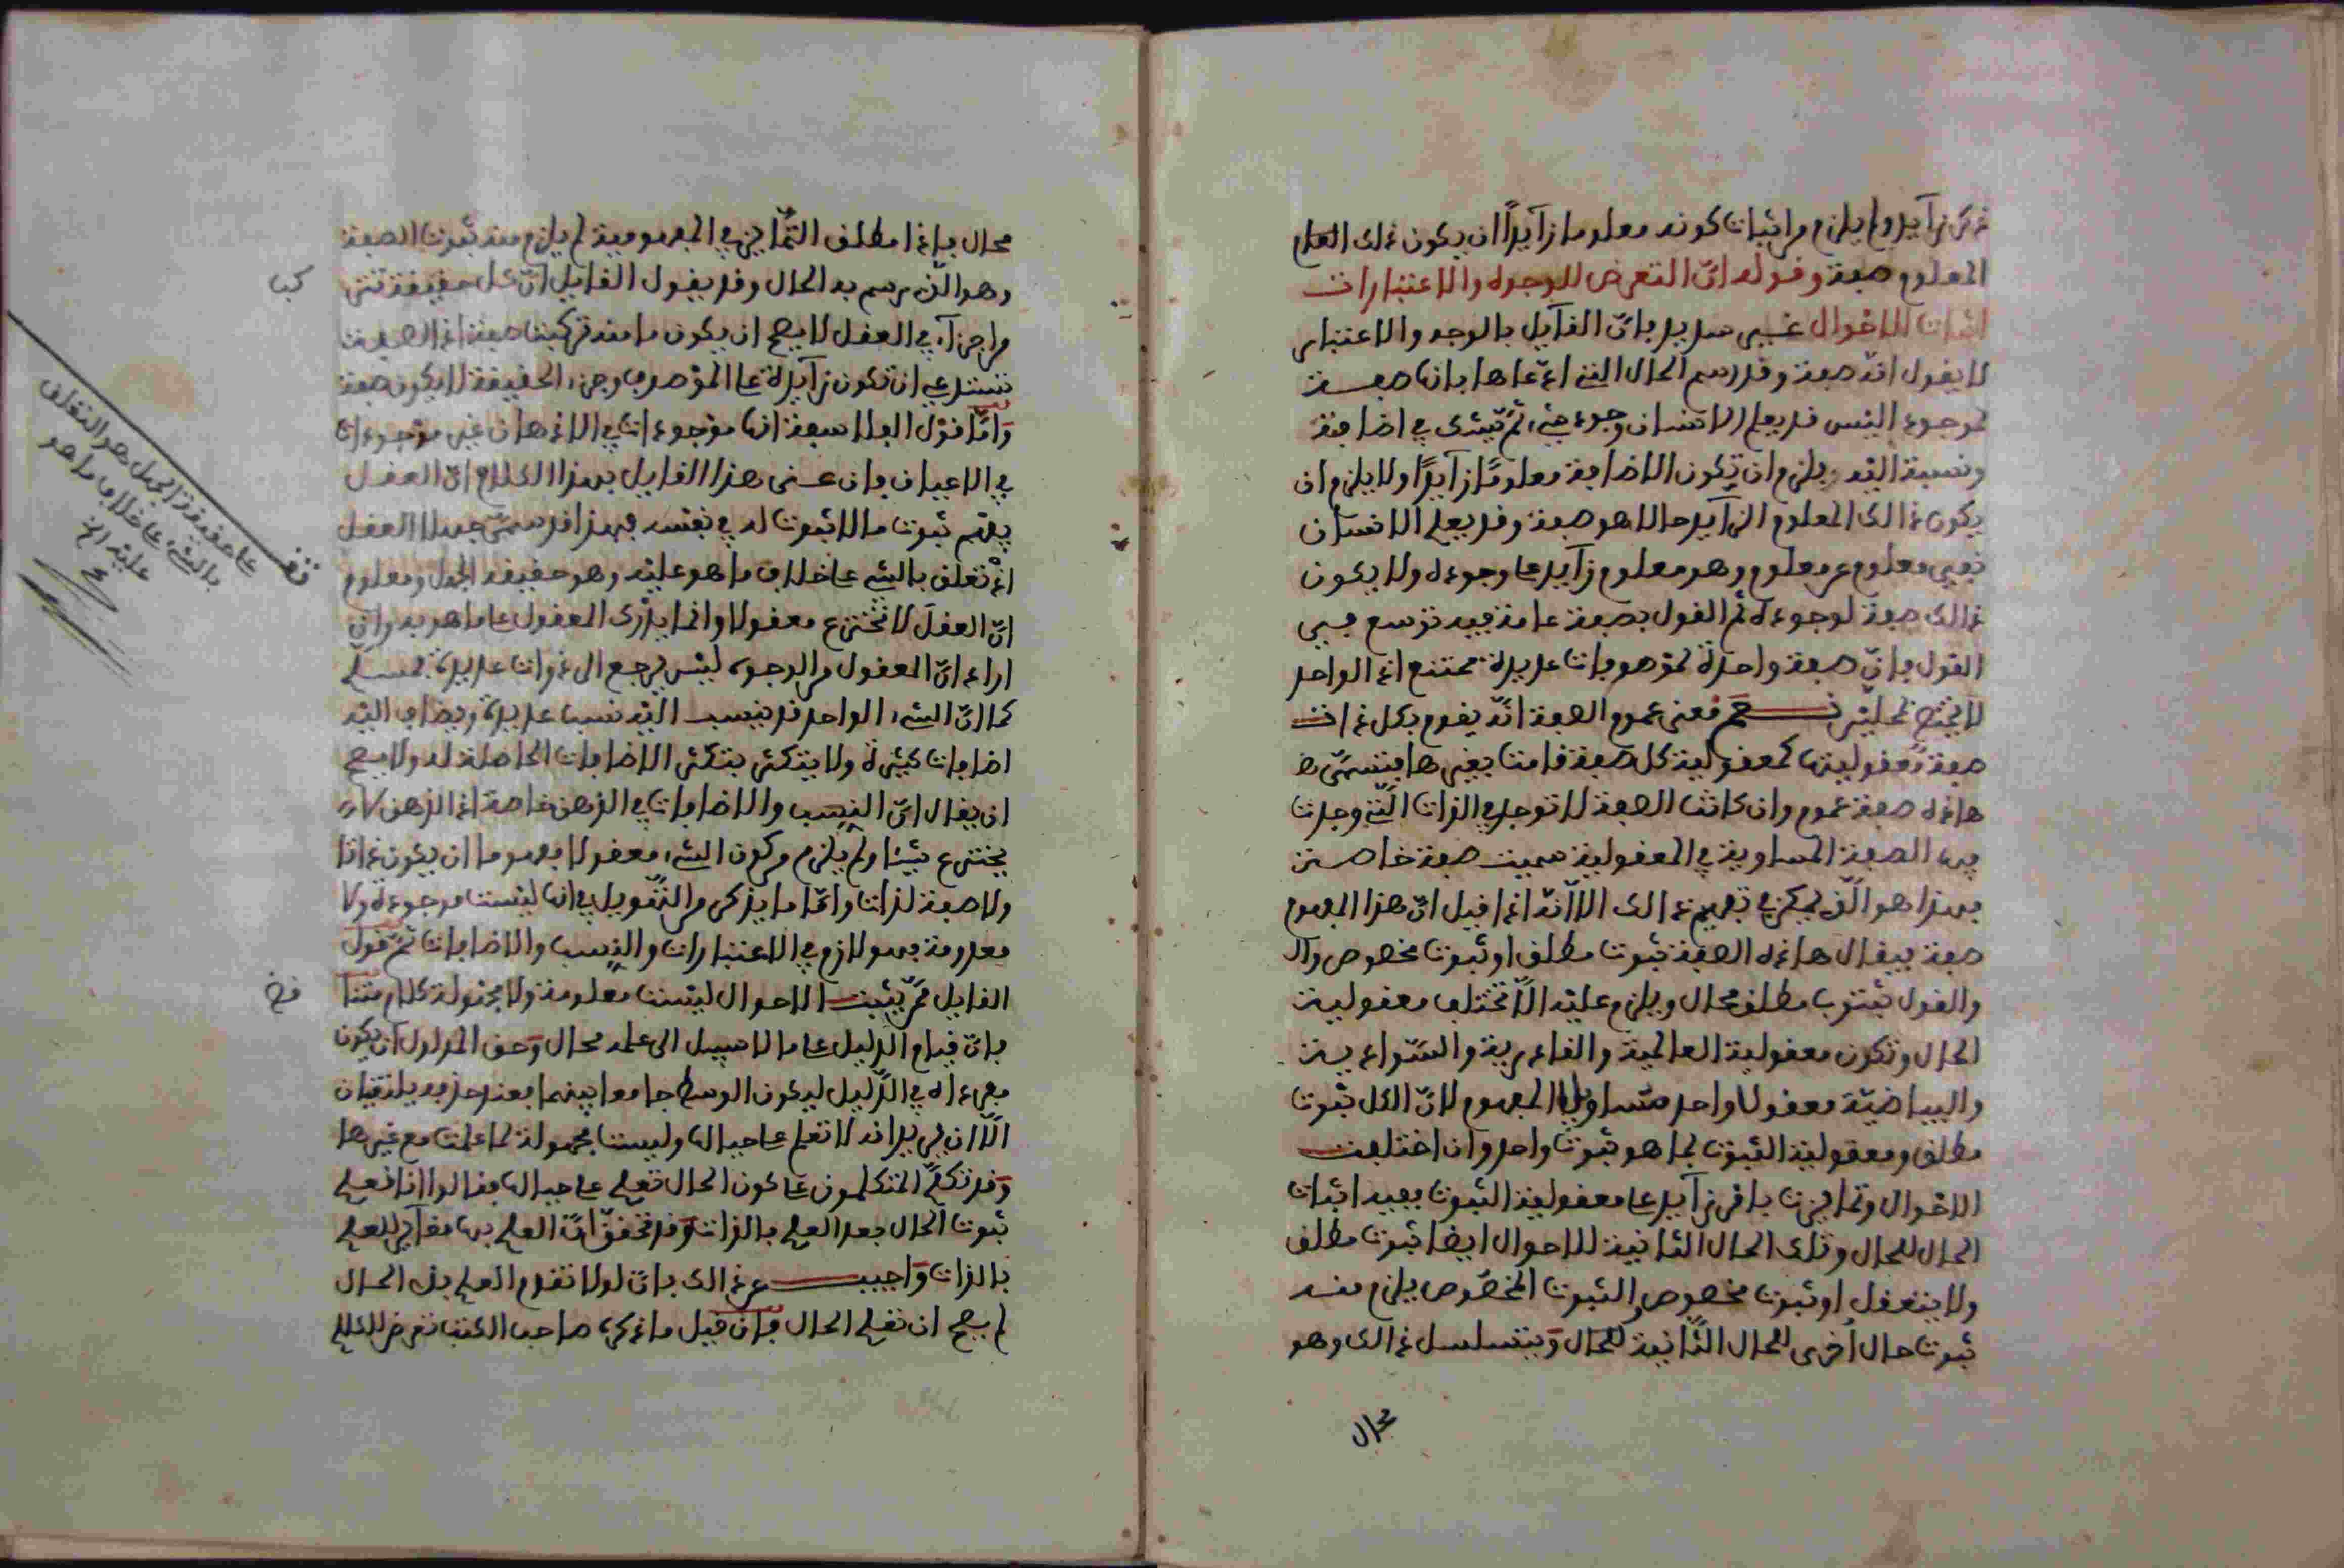 ذكر زآيد ولم يلزم من اثبات كونه معلوما زآيدًا ان يكون ذلك العلم
المعلوم صفة وقوله انّ التعرض للوجوه والاعتبارات
اثبات للاحْوال غيْر سديد بانّ القآيل بالوجه والاعتبار
لا يقول انّه صفة وقد رسم الحال التى ادّعاها بانها صفة
لموجود اليْس قد يعلم الانسان وجود شيء ثم يتبدى في اضافته
ونسبة اليْه ويلزم ان تكون الاضافة معلومًا زآيدًا ولا يلزم ان
يكون ذالك المعلوم الزآيد حالا هو صفة وقد يعلم الانسان
نفي معلوم عن معلوم وهو معلوم زآيد على وجوده ولا يكون
ذالك صفة لوجوده ثم القول بصفة عامة فيه توسع فسى
القول فانّ صفة واحدة لموْصوفات عديدة ممتنع اذ الواحد
لا يحلّ محليْن نعم فمعنى عموم الصفة انّه يقوم بكل ذات
صفة معْقوليتها كمعقولية كل صفة قامت بغيرها فتسمّى
هاذه صفة عموم وان كانت الصفة لا توجد في الذات الّتى وجدت
فيها الصفة المساوية في المعقولية سميت صفة خاصة
فهذا هو الّذى يمكن في تفهيم ذالك الاّ انّه اذا قيل انّ هذا المفهوم
صفة فيقال هاذه الصفة ثبوت مطلق او ثبوت مخصوص والـ
والقول بثبوت مطلق محال ويلزم عليْه الاّ تختلف معقولية
الحال وتكون معقولية العالمية والقادرية والسّوادية
والبياضيّة معقولا واحد متساوى المفهوم لانّ الكل ثبوت
مطلق ومعقولية الثبوت بما هو ثبوت واحد وان اختلفت
الاحْوال وتمايزت بامْر زآيد على معقولية الثبوت ففيه اثبات
الحال للحال وتلك الحال الثانية للاحوال ايضا ثبوت مطلق
ولا يتعقل او ثبوت مخصوص والثبوت المخصوص يلزم منه
ثبوت حال أخرى للحال الثّانية للحال ويتسلسل ذالك وهو
محال
محال فاذا مطلق التّمايز في المفهومية لم يلزم منه ثبوت الصفة
وهو الّذى رسم به الحال وقد يقول القايل انّ كل حقيقة تتركب
من اجزآء في العقل لا يصح ان يكون ما منه تركبت صفة اذ الصفة
تستدعي ان تكون زآيدة على الموْصوف وجزء الحقيقة لا يكون صفة
وَامّا قوْل الفلاسفة انها موْجودات في الاذهان غير موْجودات
في الاعيان فان عنى هذا القايل بهذا الكلام انّ العقل
يفهم ثبوت ما لا ثبوت له في نفسه فهذا قد سمّى جهلا العقل
اذْ تعلق بالشيء على خلاف ما هو عليْه وهو حقيقة الجهل ومعلوم
انّ العقل لا يخْترع معقولا وانما يدْرك المعقول على ما هو به وان
اراد انّ المعقول من الوجوه ليْس يرجع الى ذوات عديدة فمسلم
كما انّ الشيء الواحد قد ينسب اليْه نسبا عديدة ويضاف اليْه
اضافات كثيرة ولا يتكثر بتكثر الاضافات الحاصلة له ولا يصح
ان يقال انّ النسب والاضافات في الذهن خاصة اذ الذهن لا
يخترع شيْئا ولم يلزم من كون الشيء معقولا مفهوما ان يكون ذاتا
ولا صفة لذات وامّا ما يذكر من التّهْويل في انها ليْست موجودة ولا
معدومة فهو لازم في الاعتبارات والنسب والاضافات ثمّ قول
القايل ممّن يثبت الاحوال ليْست معلومة ولا مجهولة كلام متنا
بانّ قيام الدّليل على ما لا سبيل الى علمه محال وَحق المدلول ان يكون
مفردا له في الدّليل ليكون الوسط جامعا بينهما فعند حذفه يلتقيان
الاّ ان يريد انه لا تعلم على حيالها وليست مجهولة لما علمت مع غيرها
وَقد تكلم المتكلمون على كون الحال تعلم على حيالها فقالوا انا نعلم
ثبوت الحال بعد العلم بالذات وَقد تحقق انّ العلم بها مغآير للعلم
بالذات وَاجيب عن ذالك بانّ لولا تقدم العلم بذى الحال
لم يصح ان تعلم الحال فان قيل ما ذكره صاحب الكتب تعرض للعلم
كب
قف على حقيقة الجهل هو التعلق
بالشيء على خلاف ما هو
عليه الخ